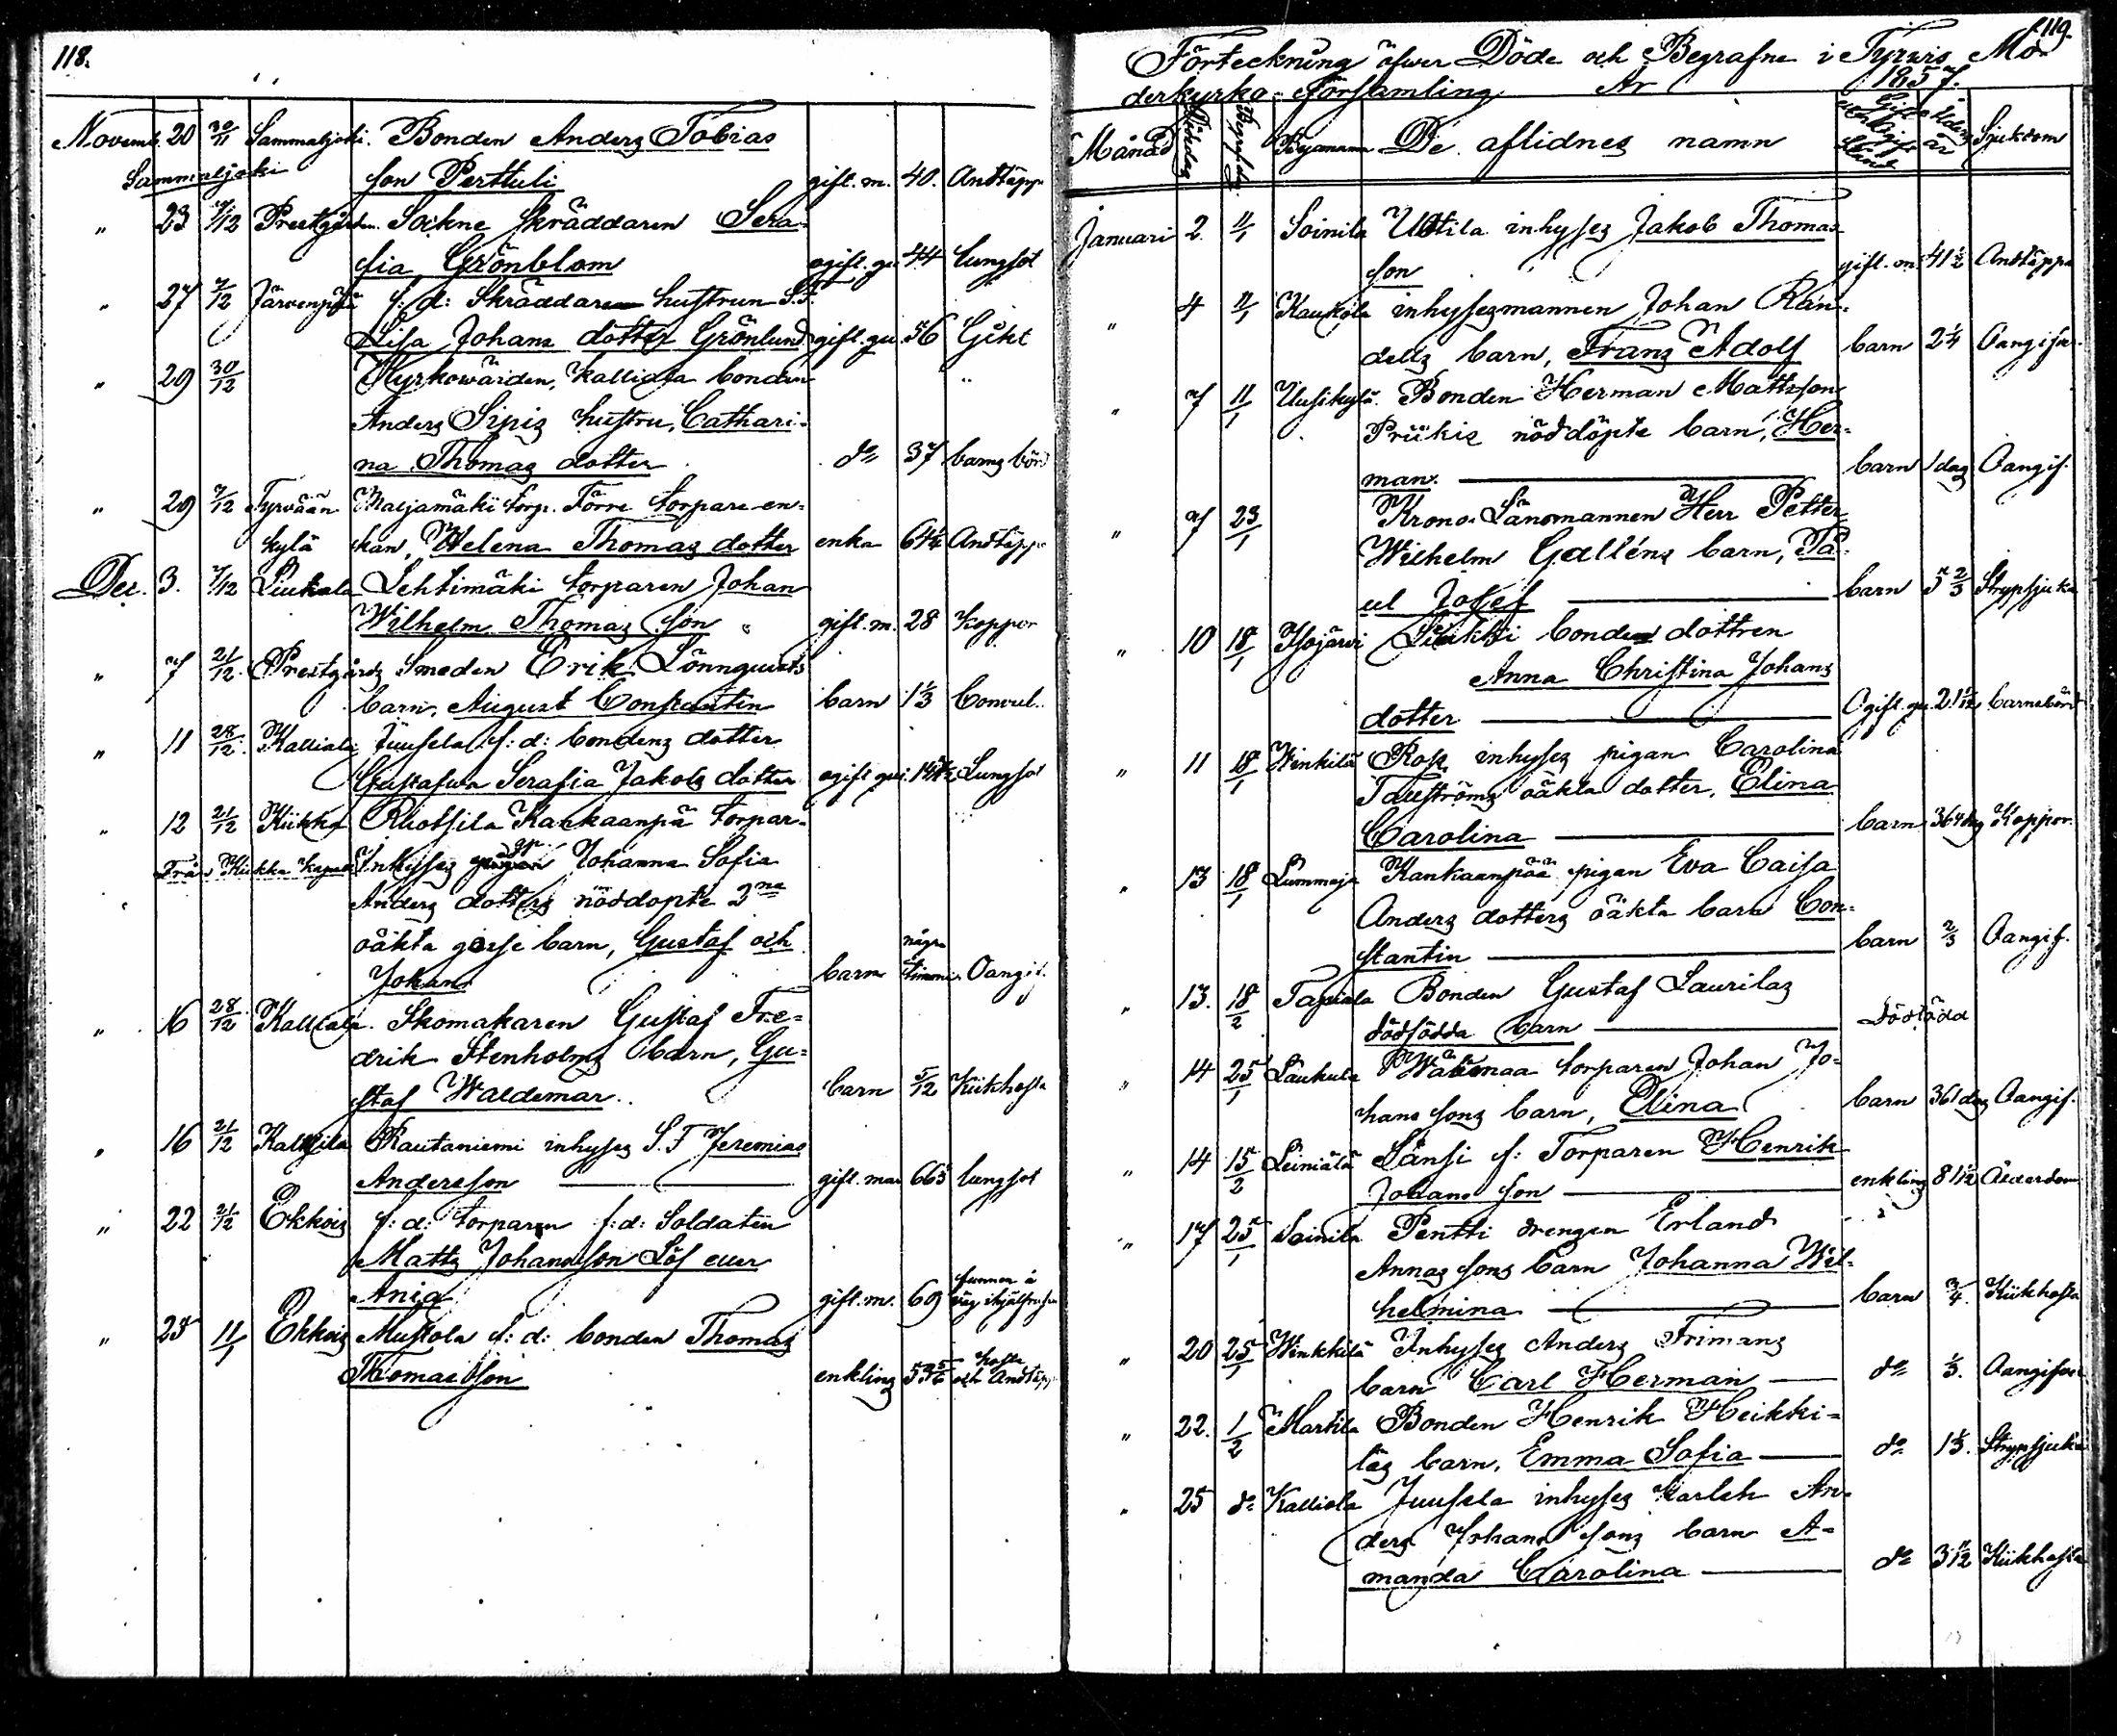 118.
Novemb. 20 30/11 Sammaljoki. Bonden Anders Tobias
Sammaljoki son Perttuli gift. m. 40. Andtäppa
" 23 7/12 Prestgården. Sockne skräddaren Sera-
fia Grönblom ogift. qu. 44 Lungsot
" 27 7/12 Järvenpää f: d: Skräddare hustrun S.F.
Lisa Johans dotter Grönlund gift. qu. 56 Gikt
" 29 30/12 Kyrkowärden, Kalliala bonden
Anders Sipis hustru, Cathari-
na Thomas dotter do 37 barns börd
" 29 7/12 Tyrvään Maljamäki torp. Törre torpare en-
kylä kan, Helena Thomas dotter enka 64 1/4 Andtäppa
Dec. 3. 7/12 Liuhala Lehtimäki torparen Johan
Wilhelm Thomas son gift. m. 28 Koppor
" 7 21/12 Prestgårds Smeden Erik Lönnquists
barn, August Constantin barn 1 1/3 Convul.
" 11 28/12 Kalliala Juusela f: d: bondens dotter
Gustafwa Serafia Jakobs dotter ogift qui. Lungsot
" 12 21/12 Kiikka Ruotsila Kankaanpä torpar-
Från Kiikka Kapell Inhyses Johanna Sofia
Anders dotters nöddopte 2ne
oäkta gosse barn, Gustaf och
Johan barn några timmar Oangif.
" 16 28/12 Kalliala. Skomakaren Gustaf Fre-
drik Stenholms barn, Gu-
staf Waldemar. barn 5/12 Kikhosta
" 16 21/12 Kaltsila Rautaniemi inhyses S. F Jeremias
Andersson gift. man Lungsot
" 22 Ekkois f: d: torparen f: d: Soldaten
Matts Johansson Löf eller
Ania gift. m. 69 funnen å väg ihjälfrusen
" 25 11/1 Ekkois Mustola f: d: bonden Thomas
Thomasson enkling 53 5/6 hosta och Andtäppa
119.
Förteckning öfwer Döde och Begrafne i Tyrwis Mo-
derkyrko-församling År 1857.
Månad Dödsdag Begrafn.dag Byanamn De aflidnes namn Gift eller Ogift stånd Ålders år Sjukdom
Januari 2. 11/1 Soinila Uotila inhyses Jakob Thomas
son gift. m. 41 1/2 Andtäppa
" 4 11/1 Kaukola inhysesmannen Johan Ran-
dells barn, Frans Adolf barn 2 1/4 Oangifven
" 7 11/1 Uusikylä. Bonden Herman Mattsson
Priikis nöddöpte barn, Her-
man. barn 1 dag Oangif.
" 7 23/1 Krono Länsmannen Herr Petter
Wilhelm Galléns barn, Pa-
ul Josef barn 5 2/3 Strypsjuka
" 10 18/1 Isojärvi Liukki bonde dottren
Anna Christina Johans
dotter Ogift. qu. 21 barnsbörd
" 11 18/1 Winkilä Rosk inhyses pigan Carolina
Tauströms oäkta dotter, Elina
Carolina barn 364 dag Koppor.
" 13 18/1 Lummaja Kankaanpää pigan Eva Caisa
Anders dotters oäkta barn Con-
stantin barn 2/3 Oangif.
" 13. 18/2 Tapiola Bonden Gustaf Laurilas
dödfödda barn Dödfödd
" 14 25/1 Laukula torparen Johan Jo-
hans sons barn, Elina barn 361 dag Oangif.
" 14 15/2 Leiniälä Länsi f: Torparen Henrik
Johans son enkling 81 1/2 Ålderdom
" 17 25/1 Soinila Pentti drengen Erland
Annas sons barn Johanna Wil-
helmina barn 3/4 Kikhosta
" 20 25/1 Winkkilä Inhyses Anders Frimans
barn Carl Herman do 1/3. Oangifven
" 22. 1/2 Martila Bonden Henrik Heikki-
läs barn, Emma Sofia do 1 1/3. Strypsjuka
" 25 do Kalliala Juusela inhyses karlen An-
ders Johans sons barn A-
manda Carolina do Kikhosta